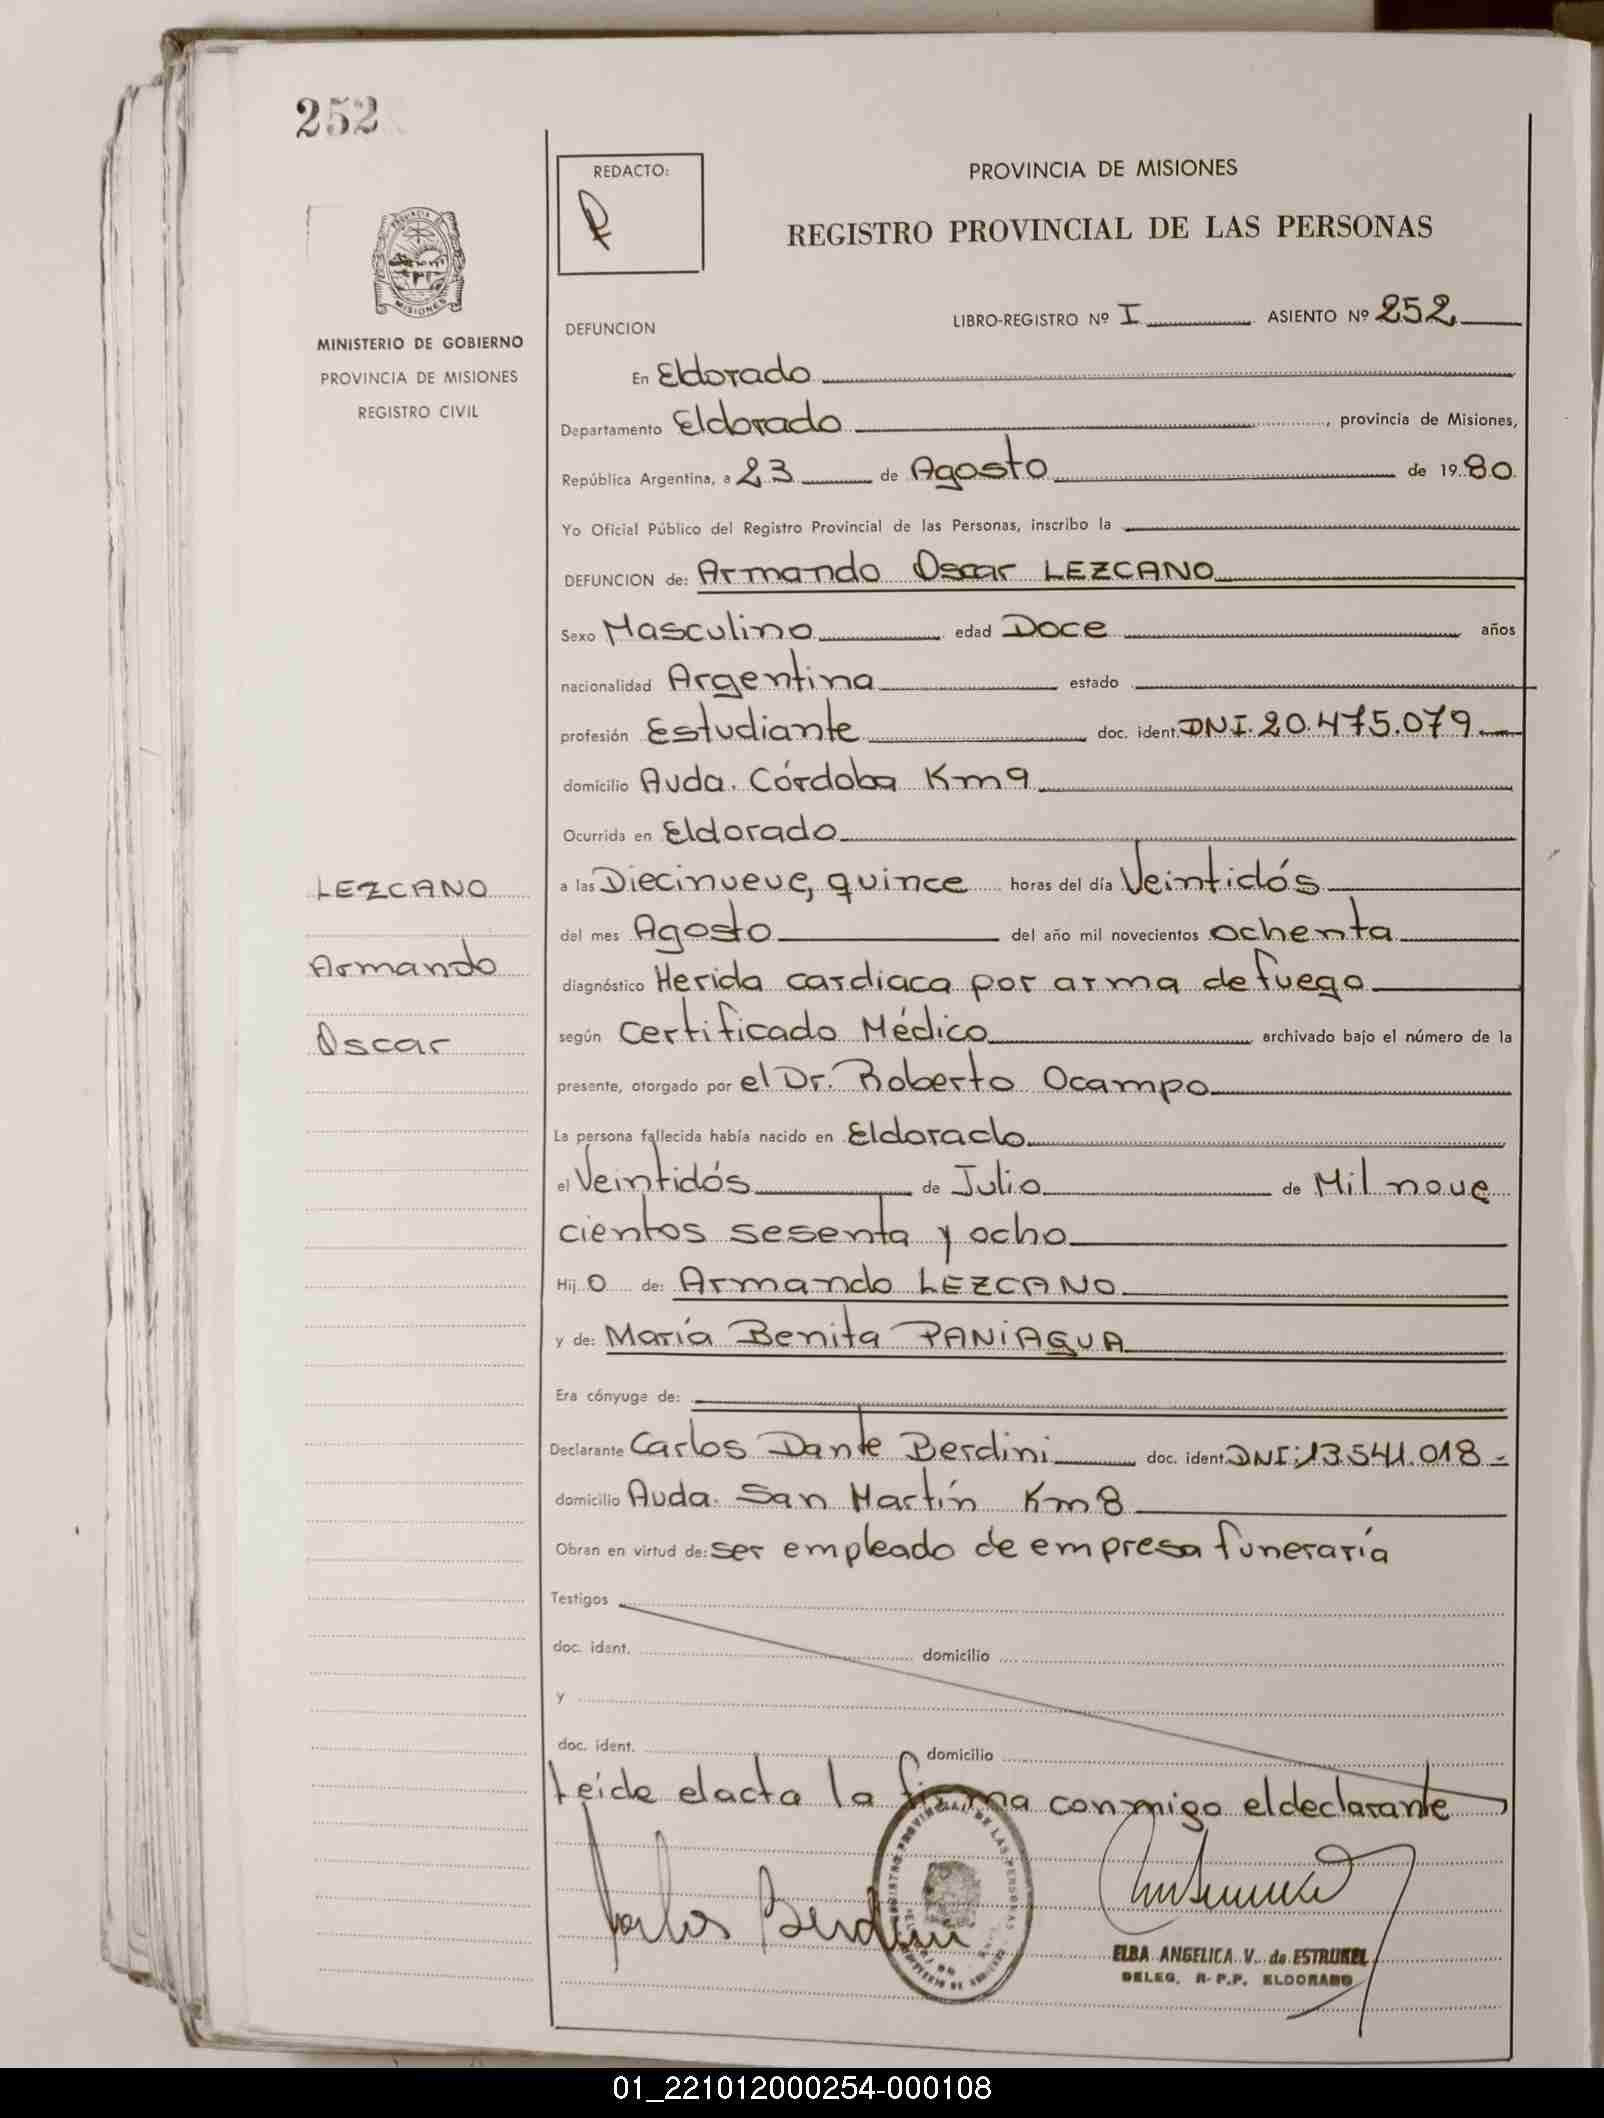 252
REDACTO:
PROVINCIA DE MISIONES
REGISTRO PROVINCIAL DE LAS PERSONAS
MISIONES
MINISTERIO DE GOBIERNO
PROVINCIA DE MISIONES
REGISTRO CIVIL
LIBRO-REGISTRO Nº I ASIENTO Nº 252
DEFUNCION
En Eldorado
Departamento Eldorado, provincia de Misiones,
República Argentina, a 23 de Agosto de 19 80
Yo Oficial Público del Registro Provincial de las Personas, inscribo la
DEFUNCION de: Armando Oscar LEZCANO
Sexo Masculino edad Doce años
nacionalidad Argentina estado
profesión Estudiante doc. ident. DNI. 20.475.079
domicilio Avda. Córdoba Km 9
Ocurrida en Eldorado
LEZCANO
Armando
Oscar
a las Diecinueve, quince horas del día Veintidós
del mes Agosto del año mil novecientos ochenta
diagnóstico Herida cardiaca por arma de fuego
según Certificado Médico archivado bajo el número de la
presente, otorgado por el Dr. Roberto Ocampo
La persona fallecida había nacido en Eldorado
el Veintidós de Julio de Mil nove
cientos sesenta y ocho
Hij o de: Armando LEZCANO
y de: María Benita PANIAGUA
Era cónyuge de:
Declarante Carlos Dante Berdini doc. ident. DNI: 13.541.018
domicilio Avda. San Martín Km 8
Obran en virtud de: ser empleado de empresa funeraria
Testigos
doc. ident. domicilio
y
doc. ident. domicilio
Leida el acta la firma conmigo el declarante
Carlos Berdini
REGISTRO PROVINCIAL DE LAS PERSONAS
ELBA ANGELICA V. de ESTRUKEL
DELEG. R.P.P. ELDORADO
01_221012000254-000108